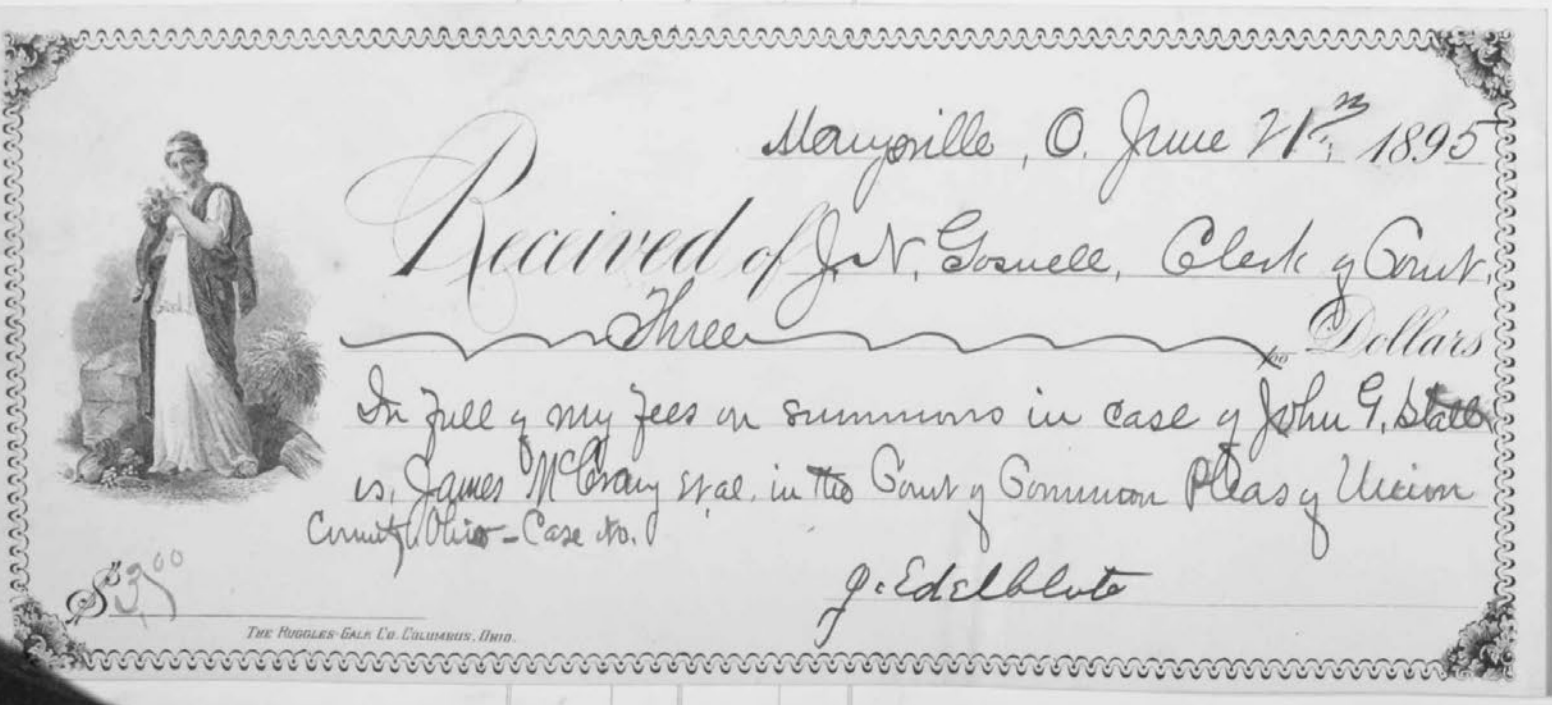 Marysville, O. June 21st, 1895
Received of J. N. Gosnell, Clerk of Court,
Three no/00 Dollars
In full of my fees on summons in case of John G. Stall
vs. James McCrary et al. in the Court of Common Pleas of Union
County, Ohio - Case No.
J. Edelblute
$3.00
THE RUGGLES-GALE CO. COLUMBUS, OHIO.